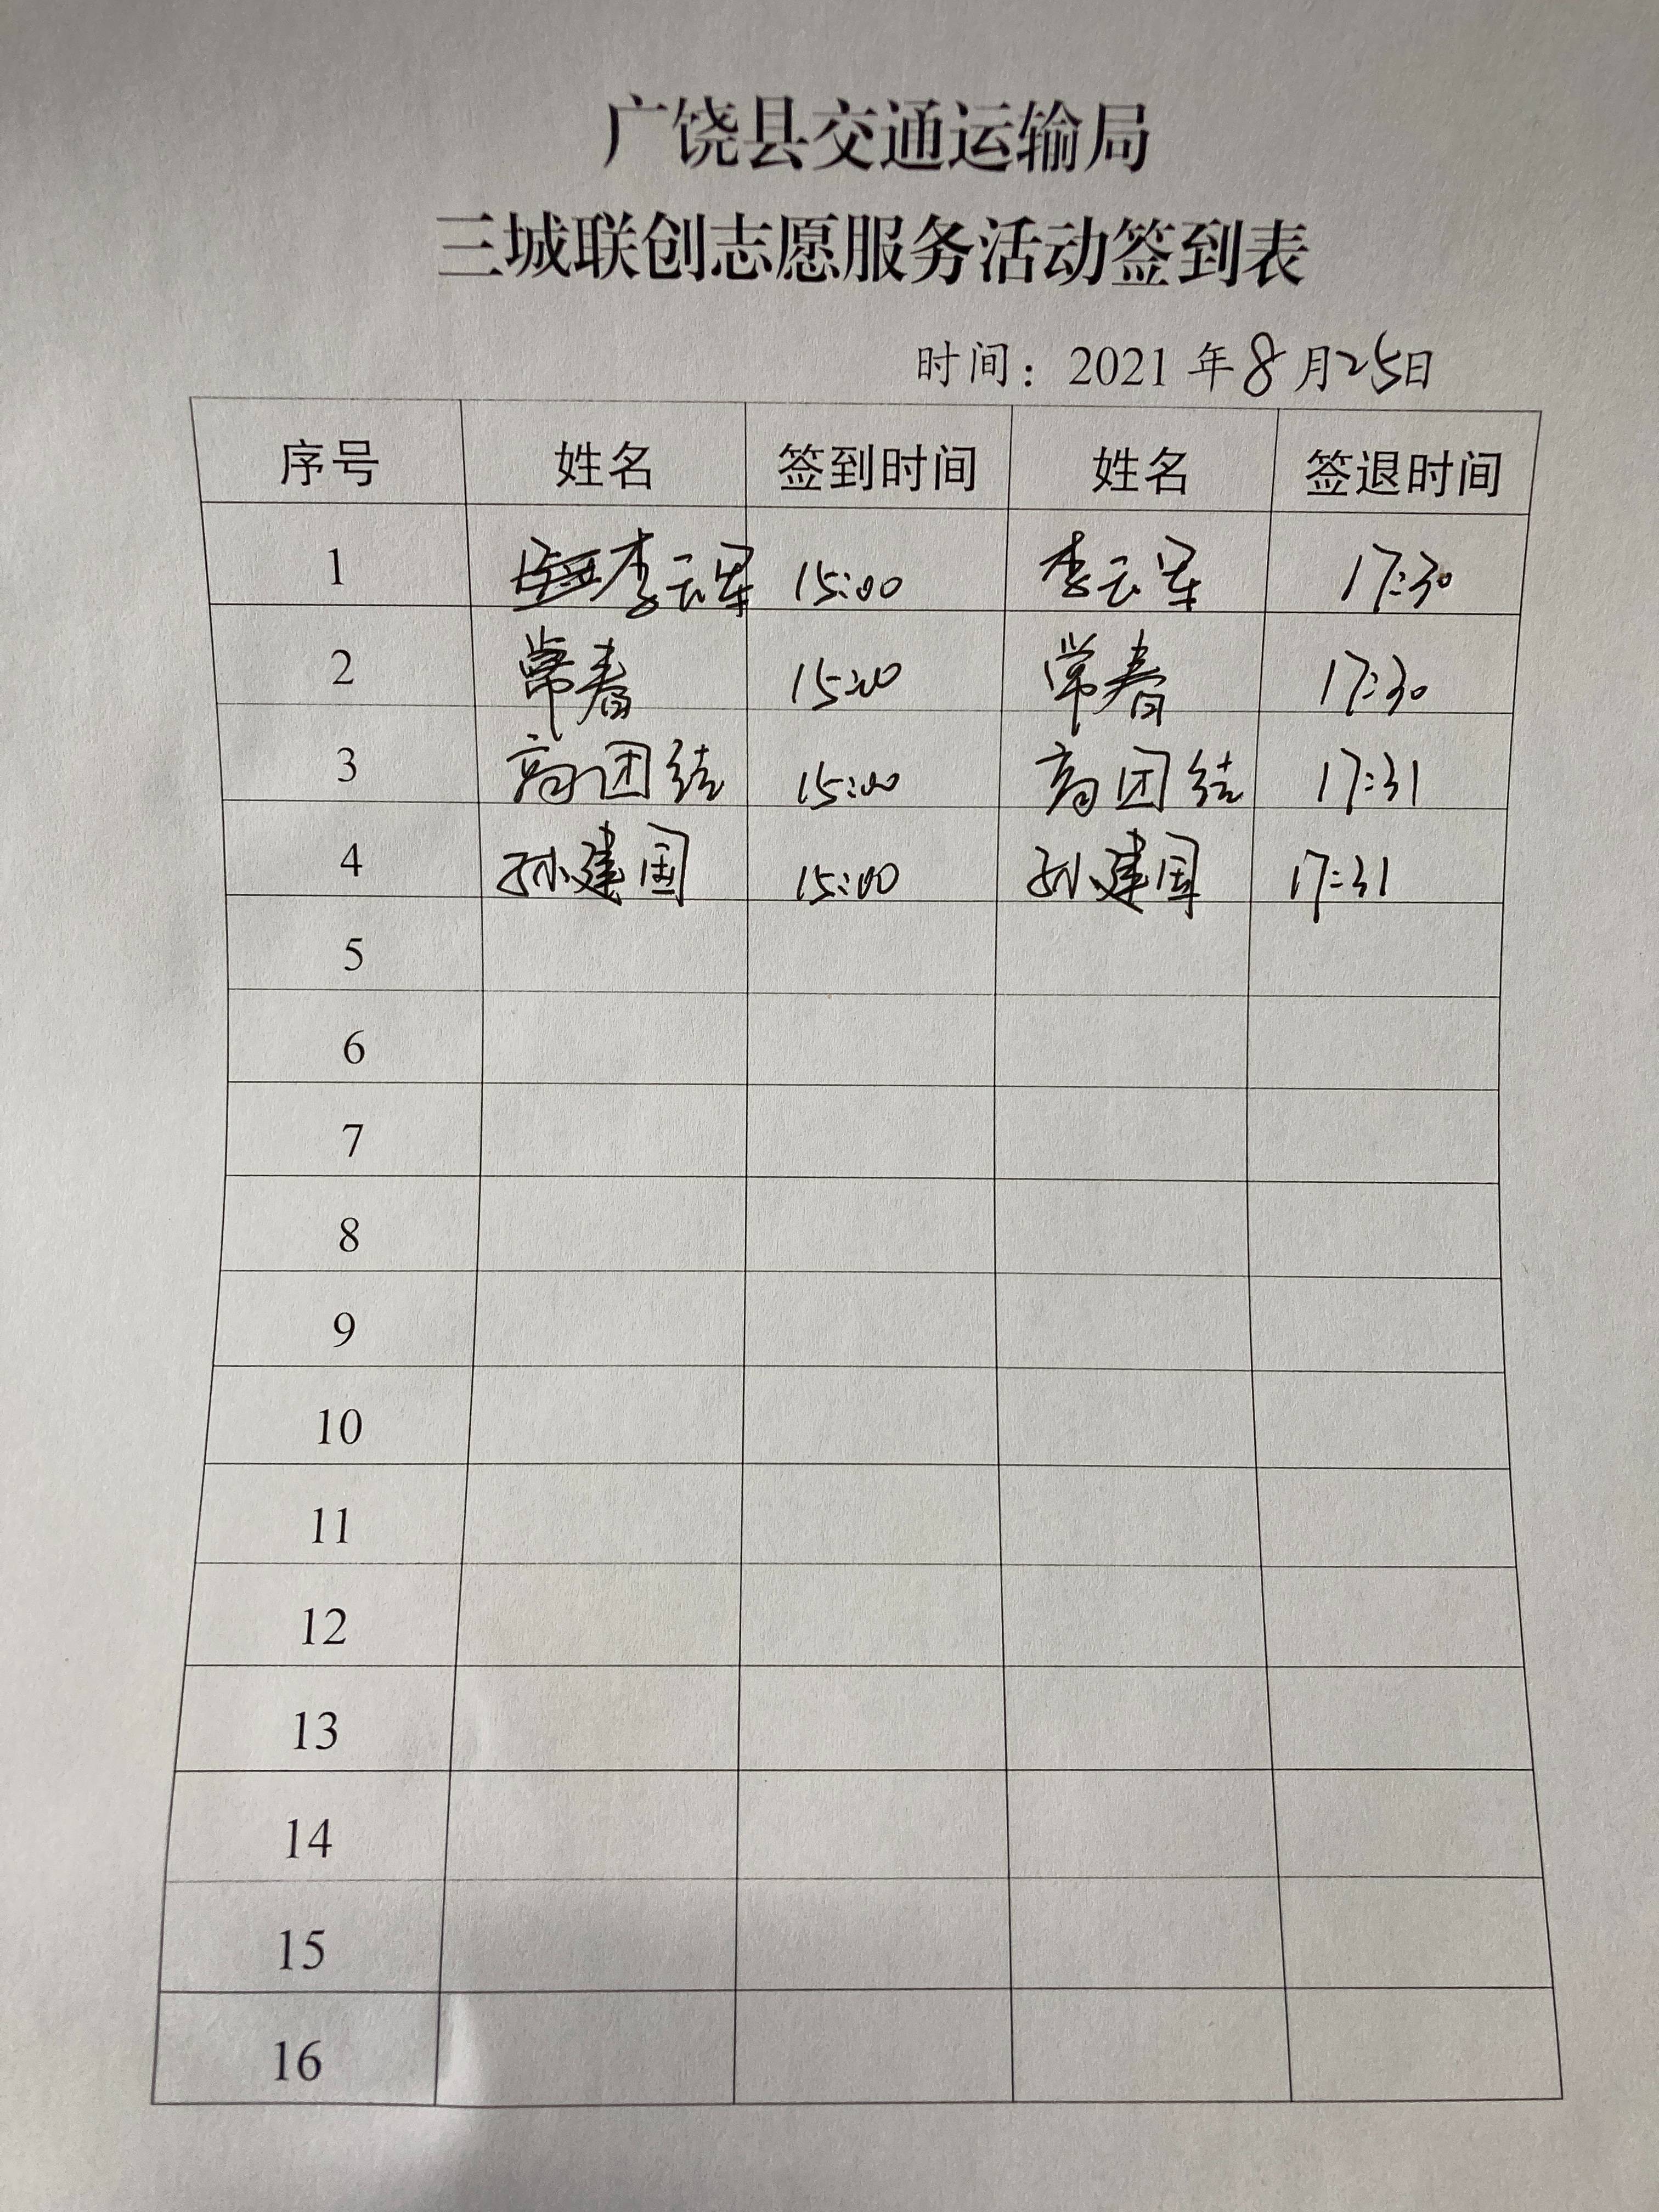 广饶县交通运输局
三城联创志愿服务活动签到表
时间：2021年8月25日
序号 姓名 签到时间 姓名 签退时间
1 李云军 15:00 李云军 17:30
2 常春 15:00 常春 17:30
3 高团结 15:00 高团结 17:31
4 孙建国 15:00 孙建国 17:31
5
6
7
8
9
10
11
12
13
14
15
16